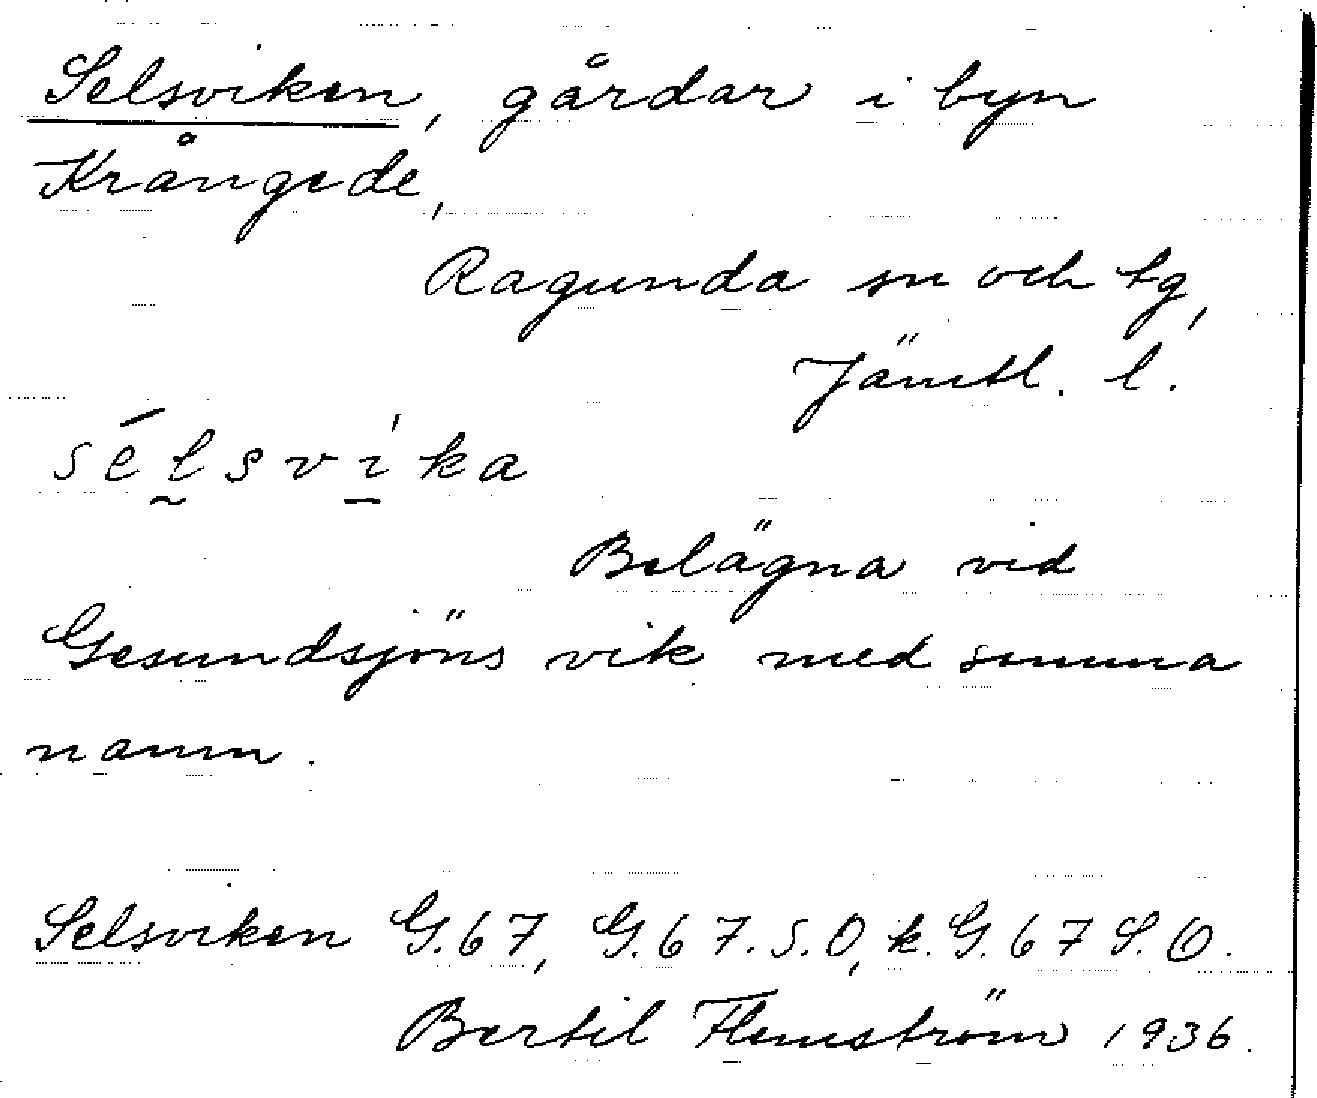 Selsviken, gårdar i byn
Krångede,
Ragunda sn och tg,
Jämtl. l.
sélsvika
Belägna vid
Gesundsjöns vik med samma
namn.
Selsviken G.67, G.67.S.O, k.G.67 S.O.
Bertil Flemström 1936.